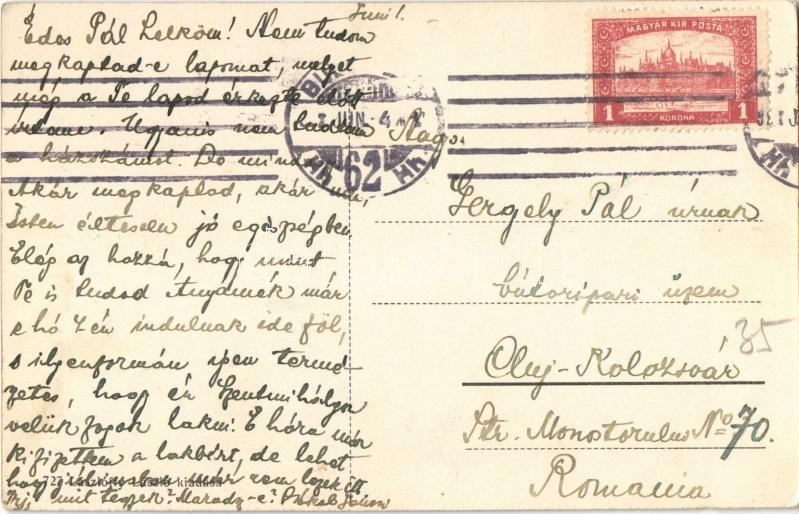 Juni 1.
Édes Pál Lelköm! Nem tudom
megkaptad-e lapomat, melyet
még a Te lapod érkezte előtt
irtam. Ugyanis nem tudtam
a házszámot. De mind
Akár megkaptad, akár nem,
Isten éltessen jó egészségben
Elég az hozzá, hogy mint
Te is tudod Anyámék már
e hó 4én indulnak ide föl,
s ilyenformán épen termé-
zetes, hogy én Szentmihályon
velük fogok lakni. E hóra már
kifizettem a lakbért, de lehet
hogy júliusban már nem leszek itt
Írj, mit tegyek? Maradz-e?
727 László kiadása
MAGYAR KIR. POSTA
1 KORONA 1
BU
JUN. 4
62
Nagys.
Gergely Pál úrnak
bútoripari üzem
Cluj-Kolozsvár
Str. Monostorului No 70.
Romania
35